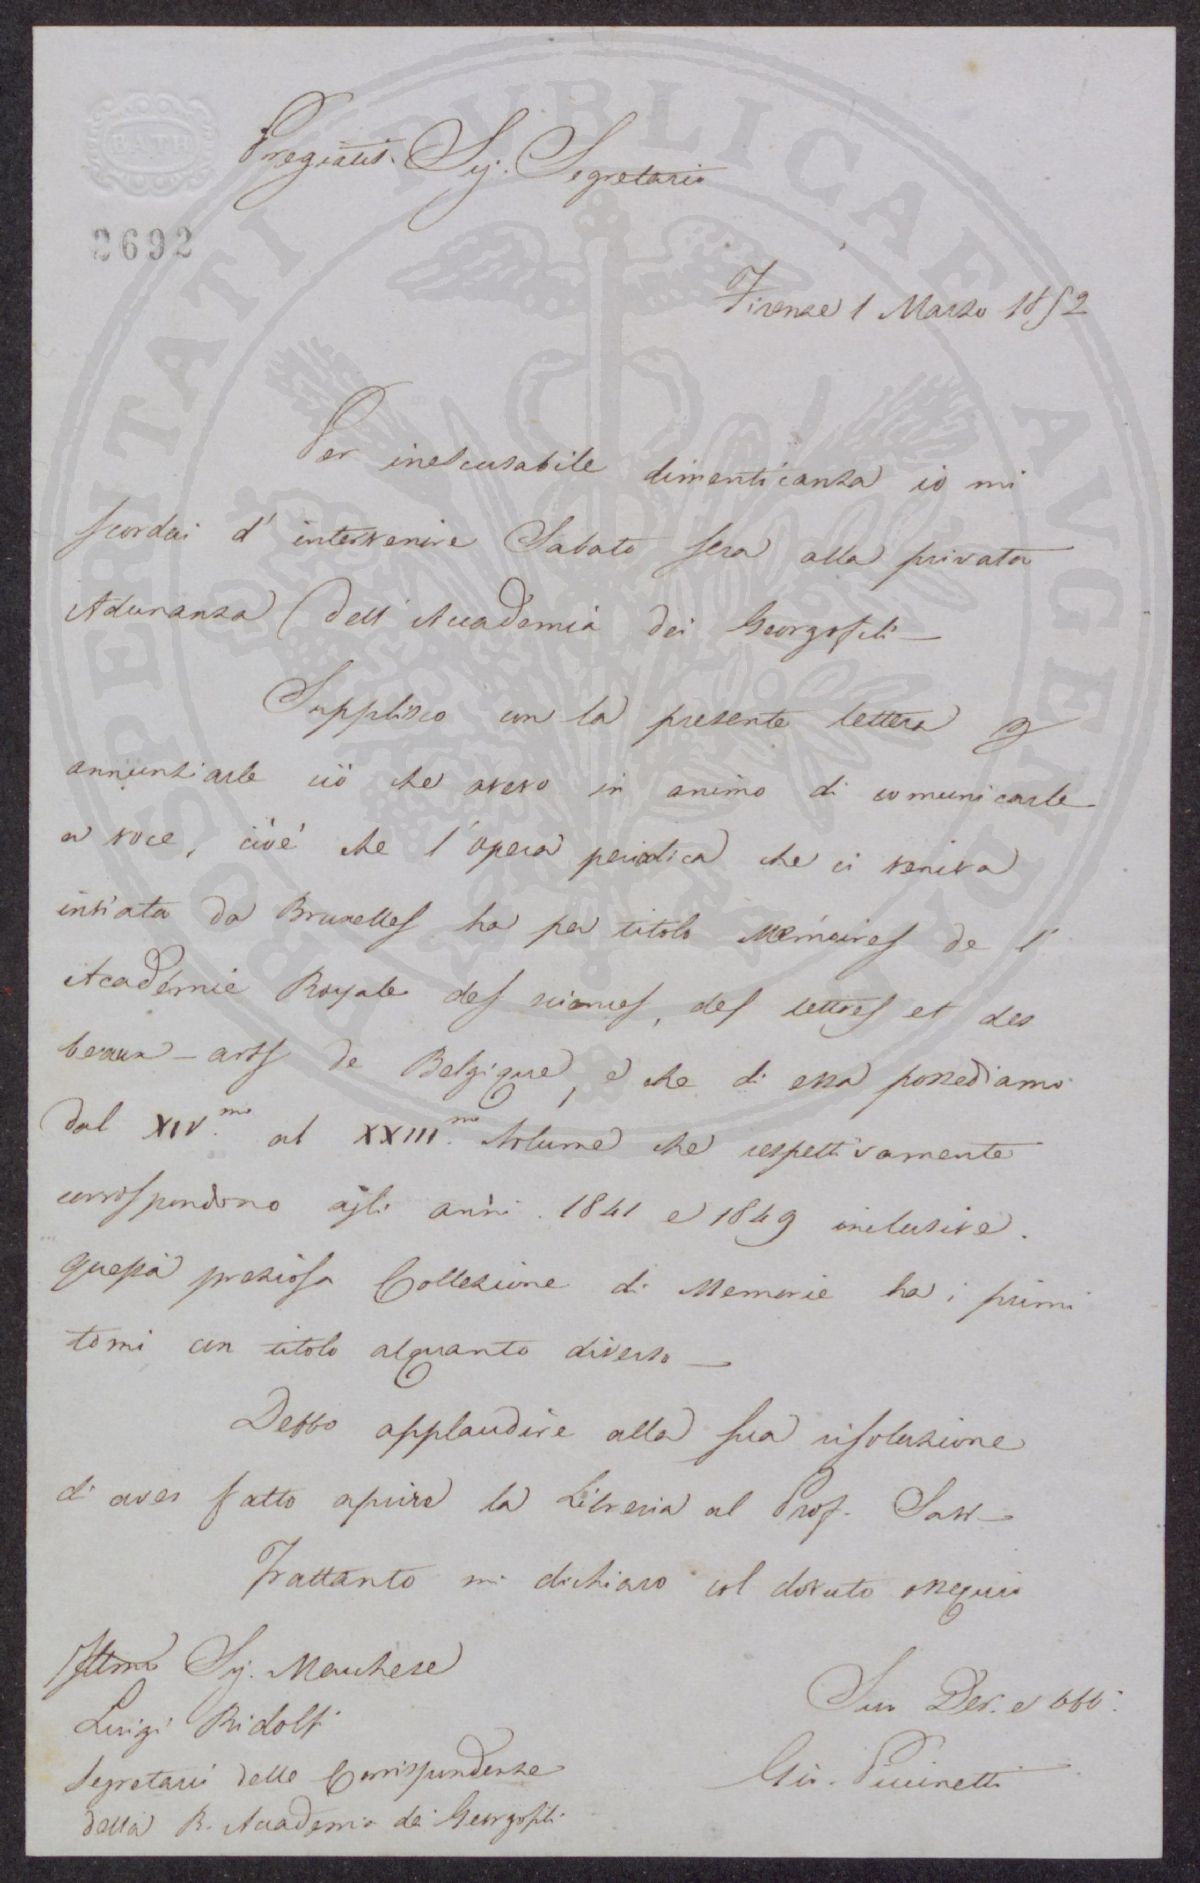 BATH
2692
Pregiatis. Sig. Segretario
Firenze 1 Marzo 1852
Per inescusabile dimenticanza io mi
scordai d'intervenire Sabato sera alla privata
Adunanza dell'Accademia dei Georgofili —
Supplisco con la presente lettera
annunziarle ciò che avevo in animo di comunicarle
a voce, cioè che l'opera periodica che ci veniva
inviata da Bruxelles ha per titolo Mémoires de l'
Académie Royale des sciences, des lettres et des
beaux-arts de Belgique, e che di essa possediamo
dal XIV.mo al XXIII.mo Volume che respettivamente
corrispondono agli anni 1841 e 1849 inclusive.
questa preziosa Collezione di Memorie ha i primi
tomi con titolo alquanto diverso —
Debbo applaudire alla sua risoluzione
di aver fatto aprire la Libreria al Prof.
Frattanto mi dichiaro col dovuto ossequio
Suo Dev. e obb.
Gio. Piccinetti
Illmo Sig. Marchese
Luigi Ridolfi
Segretario delle Corrispondenze
della R. Accademia dei Georgofili
PROSPERITATI PVBLICAE AVGENDAE